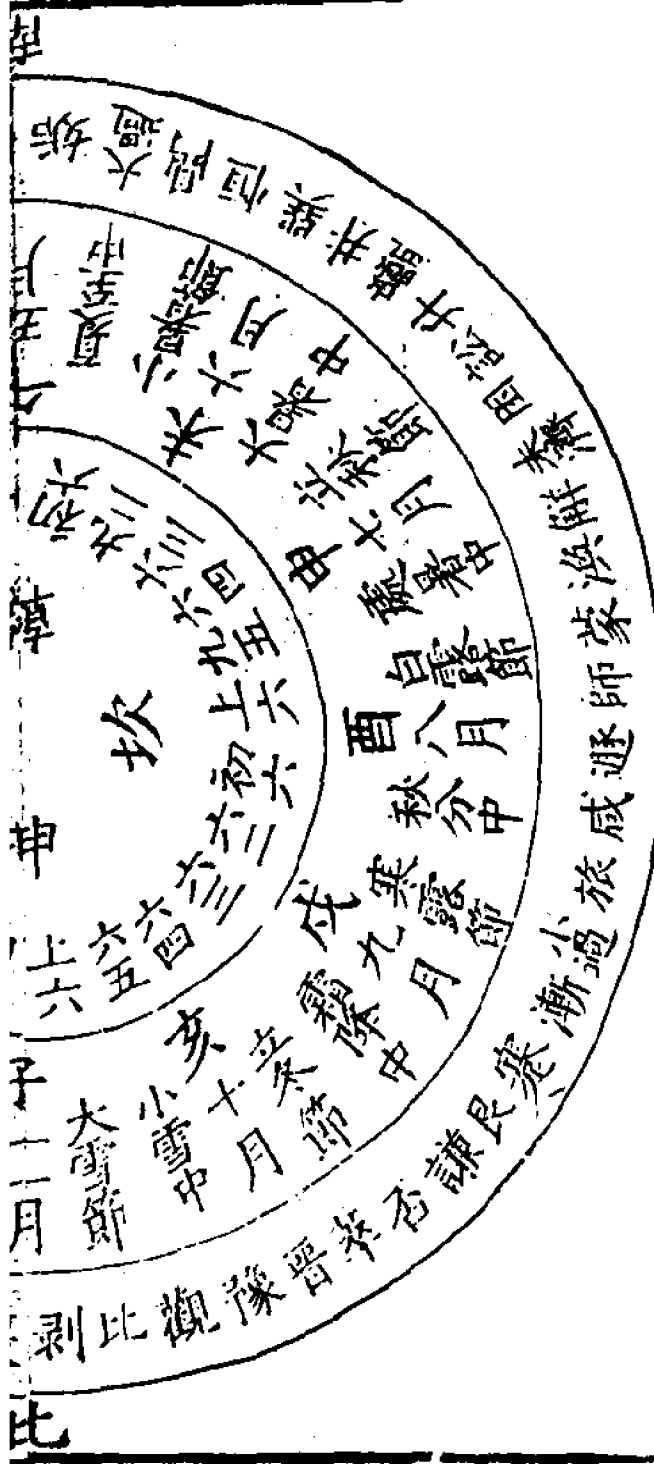 南
姤
大過
鼎
恒
巽
井
蠱
升
訟
困
未濟
解
渙
蒙
師
遯
咸
旅
小過
漸
蹇
艮
謙
否
萃
晉
豫
觀
比
剝
五月
夏至中
小暑節
未六月
大暑中
立秋節
申七月
處暑中
白露節
酉八月
秋分中
寒露節
戌九月
霜降中
立冬節
亥十月
小雪中
大雪節
子十一月
初六
九二
六三
六四
九五
上六
初六
六二
六三
六四
六五
上六
坎